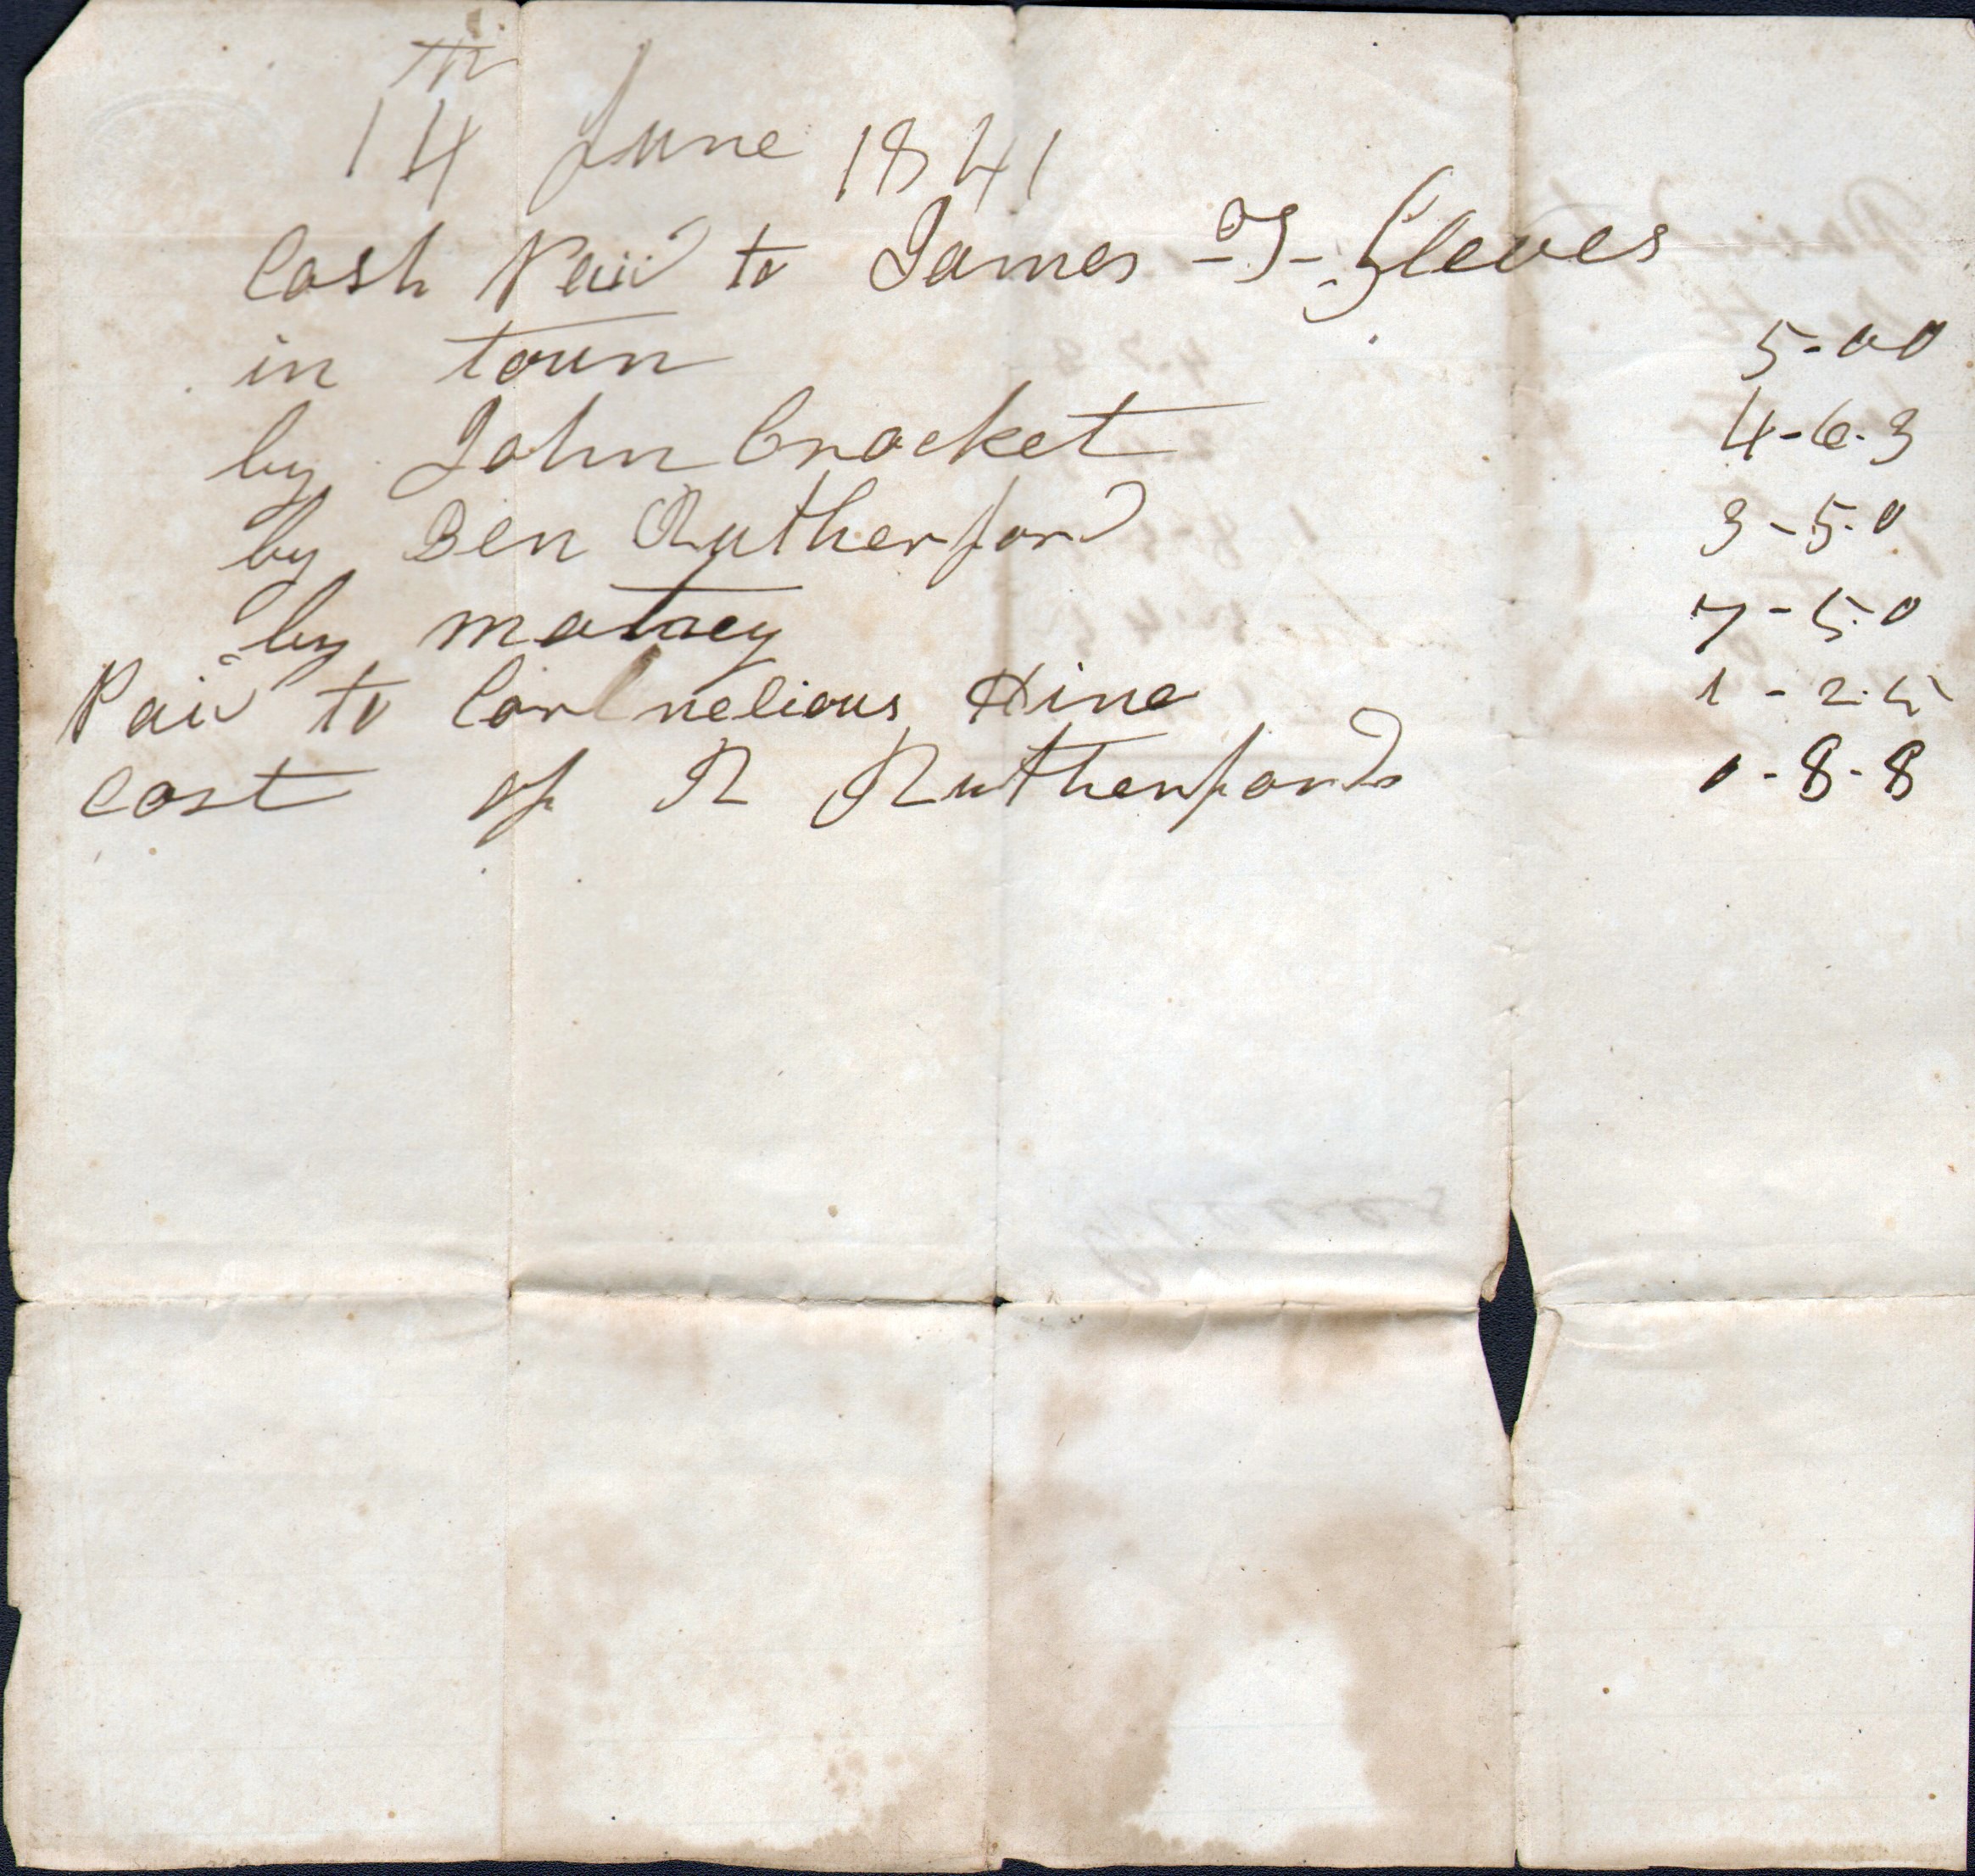 14th June 1841
Cash Paid to James T Cleves
in town 5-00
by John Crocket 4-6.3
by Ben Rutherford 3-5.0
by matney 7-5.0
Paid to Cornelious Hine 1-2.5
cost of R Rutherfords 0-8-8